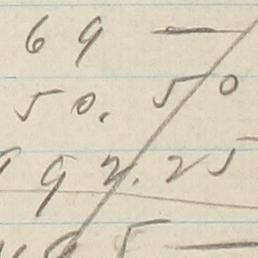 69 —
50. 50
992.25
5 —